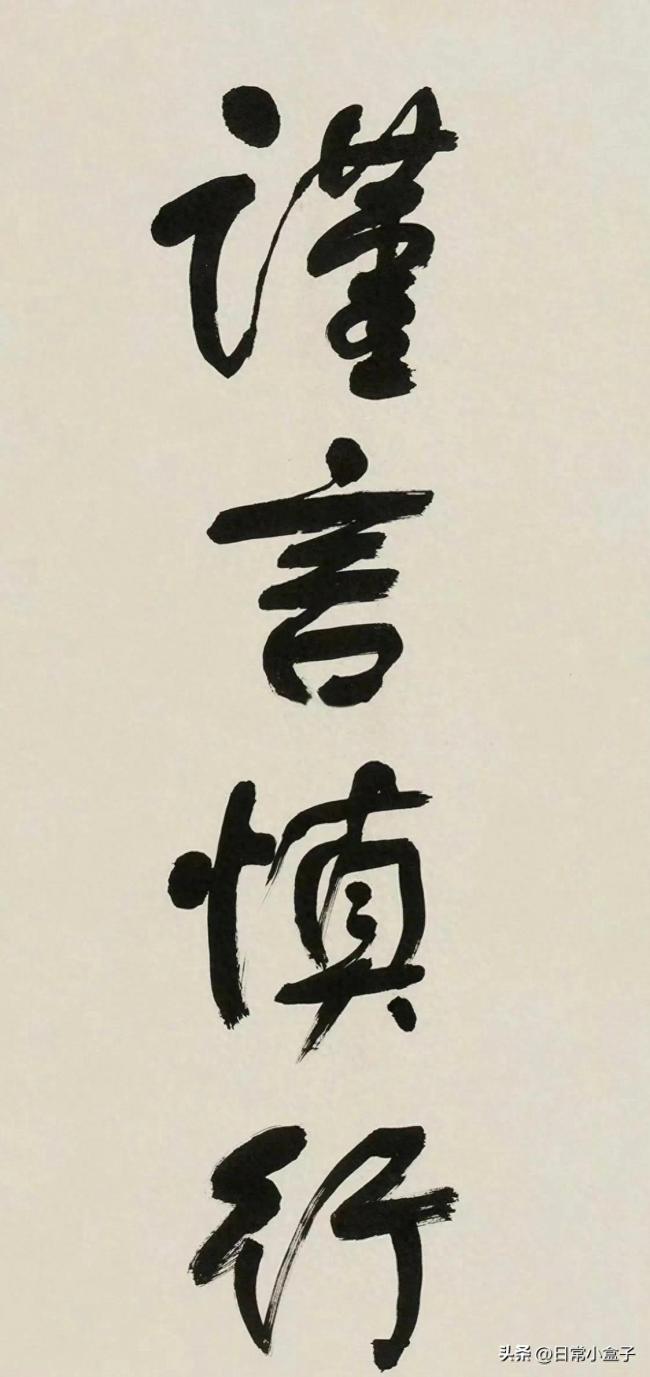 謹言慎行
头条 @日常小盒子